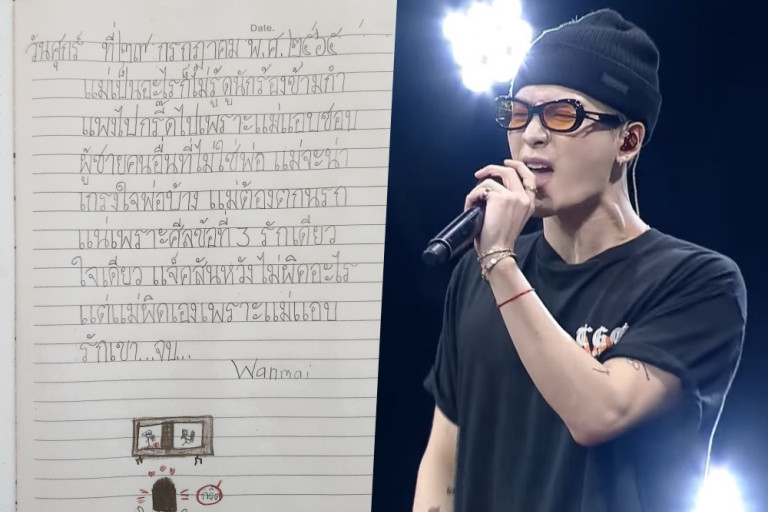 Date.
วันศุกร์ ที่๒๙ กรกฎาคม พ.ศ.๒๕๖๕
แม่เป็นอะไรก็ไม่รู้ดูนักร้องข้ามกำ
แพงไปกรี๊ดไปเพราะแม่แอบชอบ
ผู้ชายคนอื่นที่ไม่ใช่พ่อ แม่จะน่า
เกรงใจพ่อบ้าง แม่ต้องตกนรก
แน่เพราะศีลข้อที่ 3 รักเดียว
ใจเดียว แจ็คสันหวังไม่ผิดอะไร
แต่แม่ผิดเองเพราะแม่แอบ
รักเขา...จบ...
Wanmai
กรี๊ด